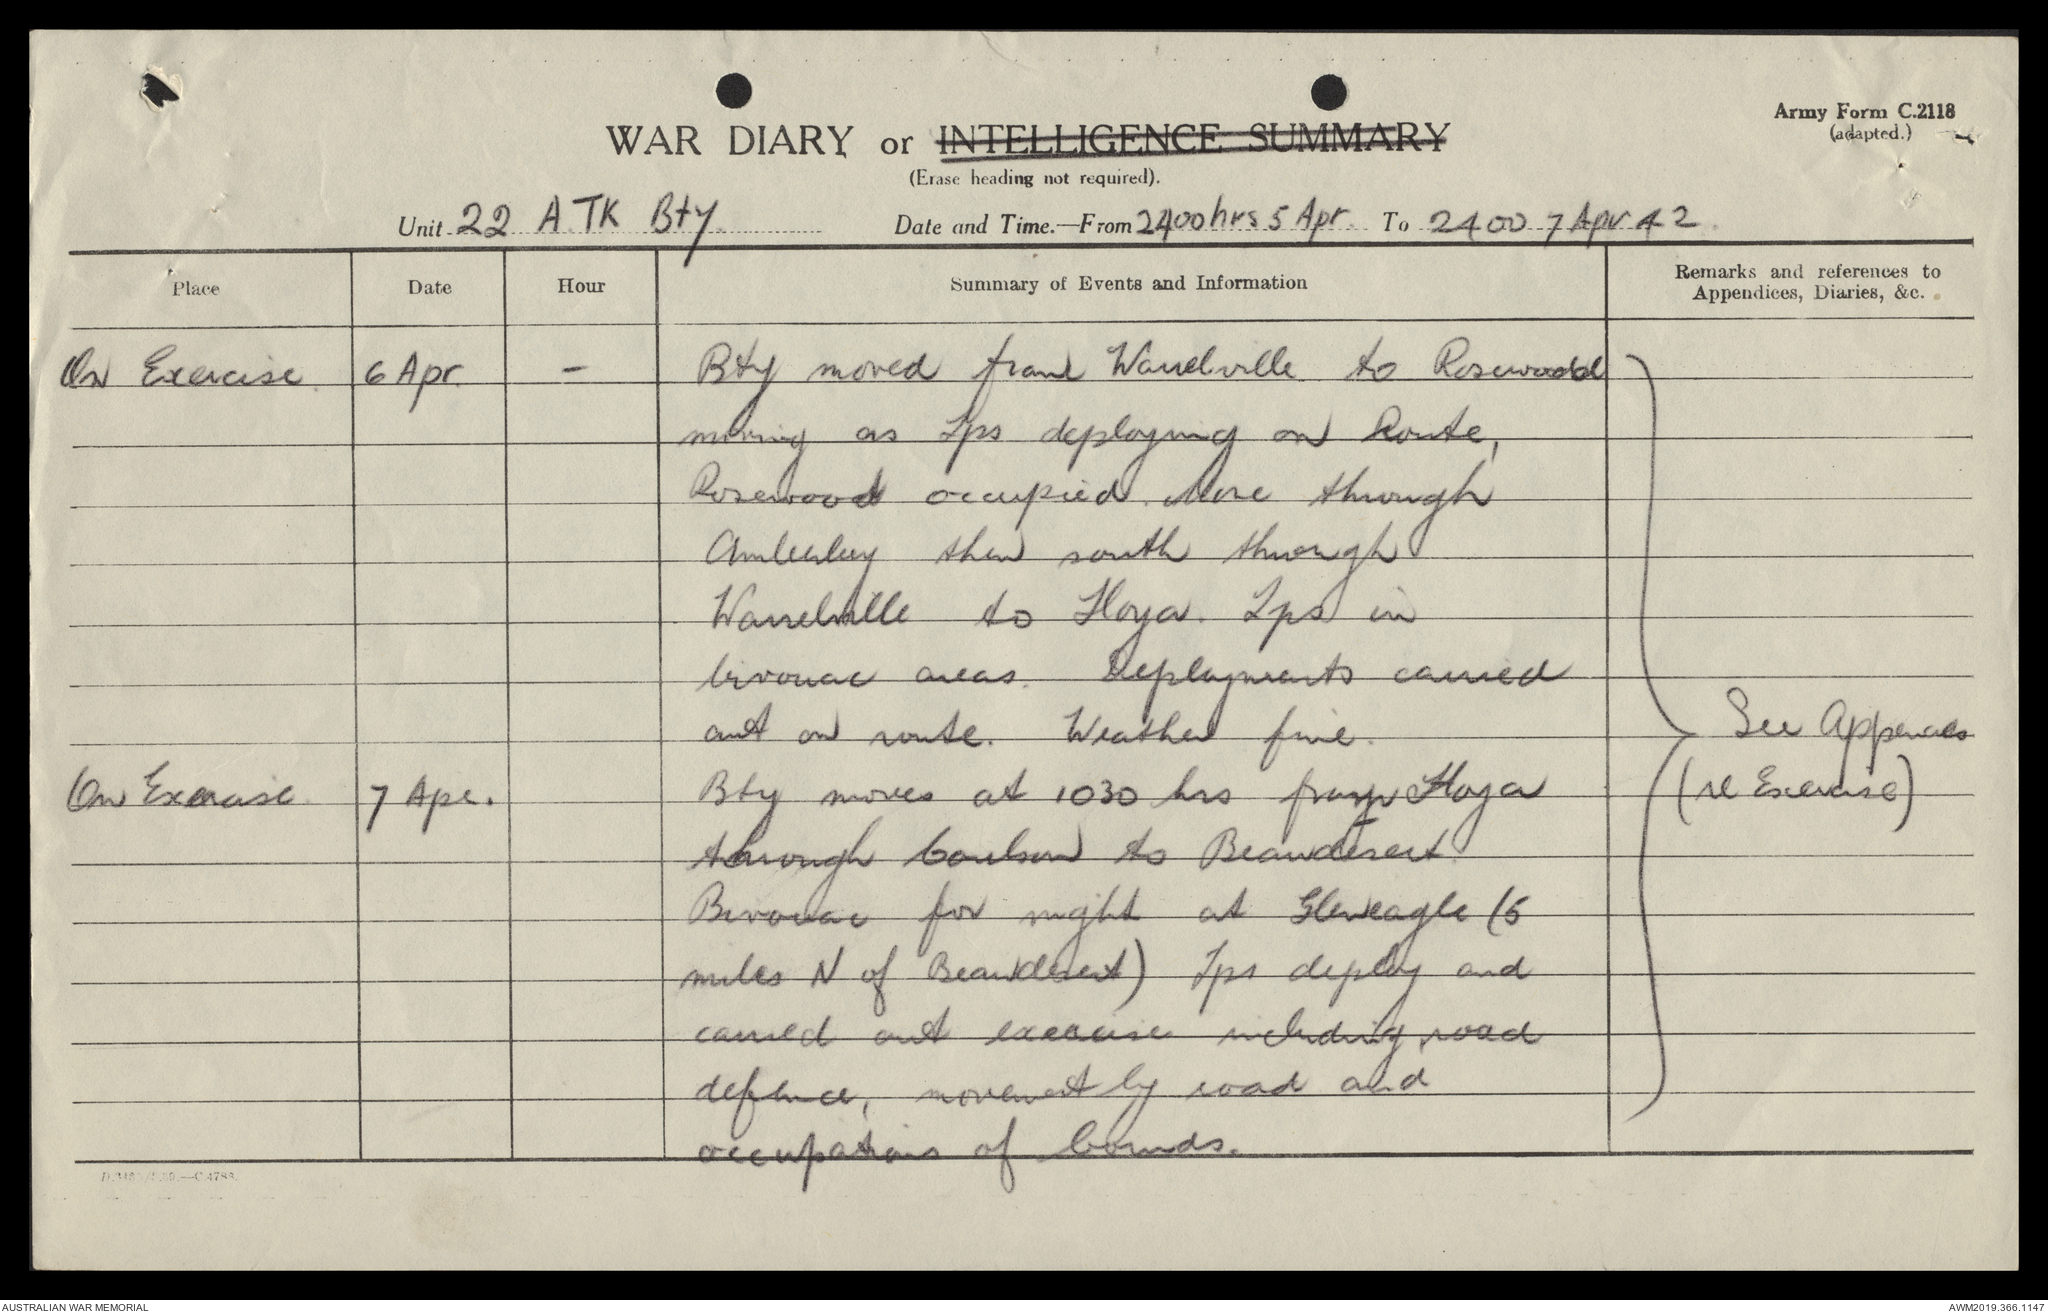 Army Form C.2118
(adapted.)
WAR DIARY or INTELLIGENCE SUMMARY
(Erase heading not required).
Unit 22 A.TK Bty Date and Time.—From 2400hrs 5 Apr. To 2400 7 Apr 42
Place Date Hour Summary of Events and Information Remarks and references to
Appendices, Diaries, &c.
On Exercise 6 Apr. - Bty moved from Warrelville to Rosewood
moving as Tps deploying on Route,
Rosewood occupied. Move through
Amberley then south through
Warrelville to Hoya. Tps in
bivouac areas. Deployments carried
out on route. Weather fine.
See Appences
On Exercise 7 Apr. Bty moves at 1030 hrs from Hoya
(re Exercise)
through Coulson to Beaudesert.
Bivouac for night at Gleneagle (5
miles N of Beaudesert) Tps deploy and
carried out exercise including road
defence, movement by road and
occupations of bounds.
AUSTRALIAN WAR MEMORIAL AWM2019.366.1147